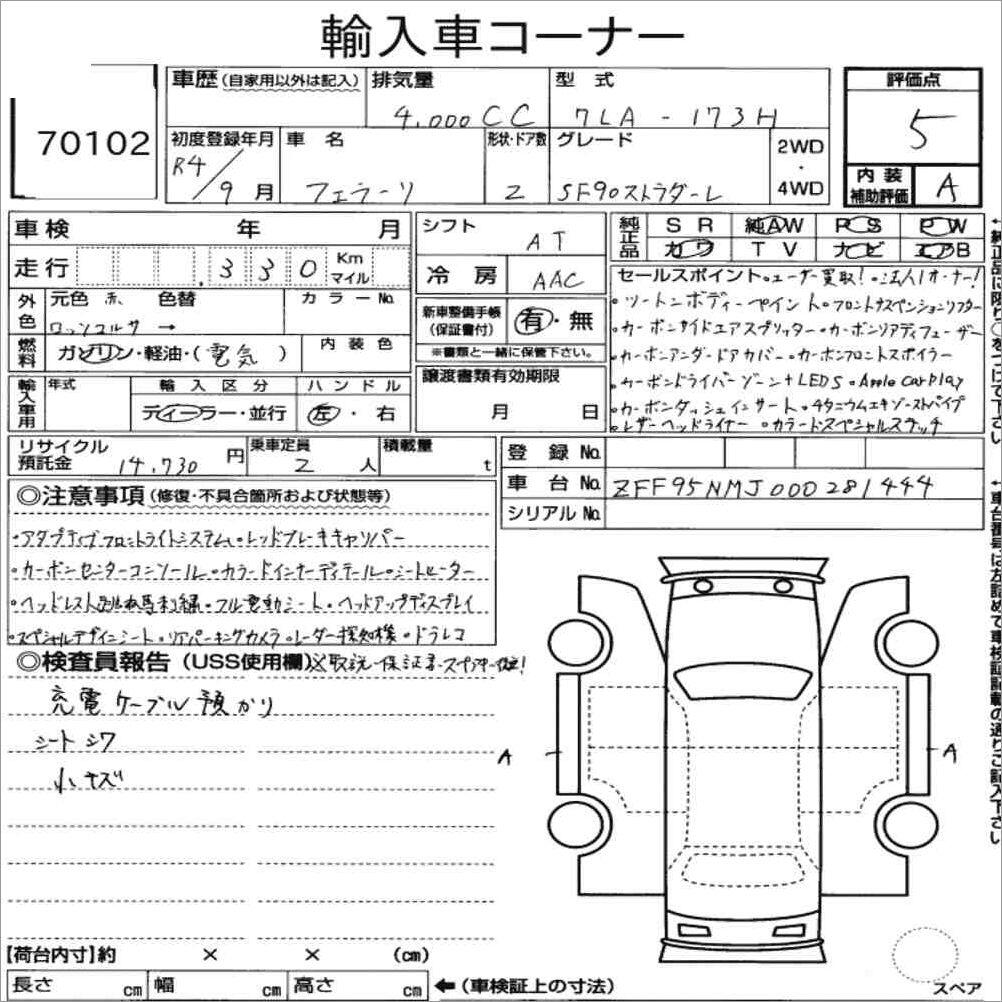 輸入車コーナー
70102
車歴(自家用以外は記入) 排気量 型式 評価点
4,000CC 7LA - 173H 5
初度登録年月 車名 形状・ドア数 グレード 2WD・4WD 内装補助評価 A
R4/9月 フェラーリ 2 SF90ストラダーレ
車検 年 月 シフト AT 純正品 SR 純AW PS PW
カワ TV ナビ エアB
走行 330 Km マイル 冷房 AAC
セールスポイント・ユーザー買取!・法人1オーナー!
・ツートンボディーペイント・フロントサスペンションリフター
・カーボンサイドエアスプリッター・カーボンリアディフューザー
・カーボンアンダードアカバー・カーボンフロントスポイラー
・カーボンドライバーゾーン+LEDS・Apple CarPlay
・カーボンダッシュインサート・チタニウムエキゾーストパイプ
・レザーヘッドライナー・カラードスペシャルステッチ
外色 元色 赤 色替 カラーNo.
ロッソコルサ →
新車整備手帳(保証書付) 有・無
※書類と一緒に保管下さい。
燃料 ガソリン・軽油・(電気) 内装色
譲渡書類有効期限
月 日
輸入車用 年式 輸入区分 ハンドル
ディーラー・並行 左・右
リサイクル預託金 14,730円 乗車定員 2人 積載量 t
登録No.
車台No. ZFF95NMJ000281444
シリアルNo.
◎注意事項(修復・不具合箇所および状態等)
・アダプティブフロントライトシステム・レッドブレーキキャリパー
・カーボンセンターコンソール・カラードインナーディテール・シートヒーター
・ヘッドレスト跳ね馬刺繍・フル電動シート・ヘッドアップディスプレイ
・スペシャルデザインシート・リアパーキングカメラ・レーダー探知機・ドラレコ
◎検査員報告(USS使用欄)※取説・保証書・スペアキー
充電ケーブル預かり
シートシワ
小キズ
A
A
【荷台内寸】約 × × (cm)
長さ cm 幅 cm 高さ cm ←(車検証上の寸法)
スペア
←純正品に限り○をつけて下さい
←車台番号は左詰めで車検証記載の通りご記入下さい